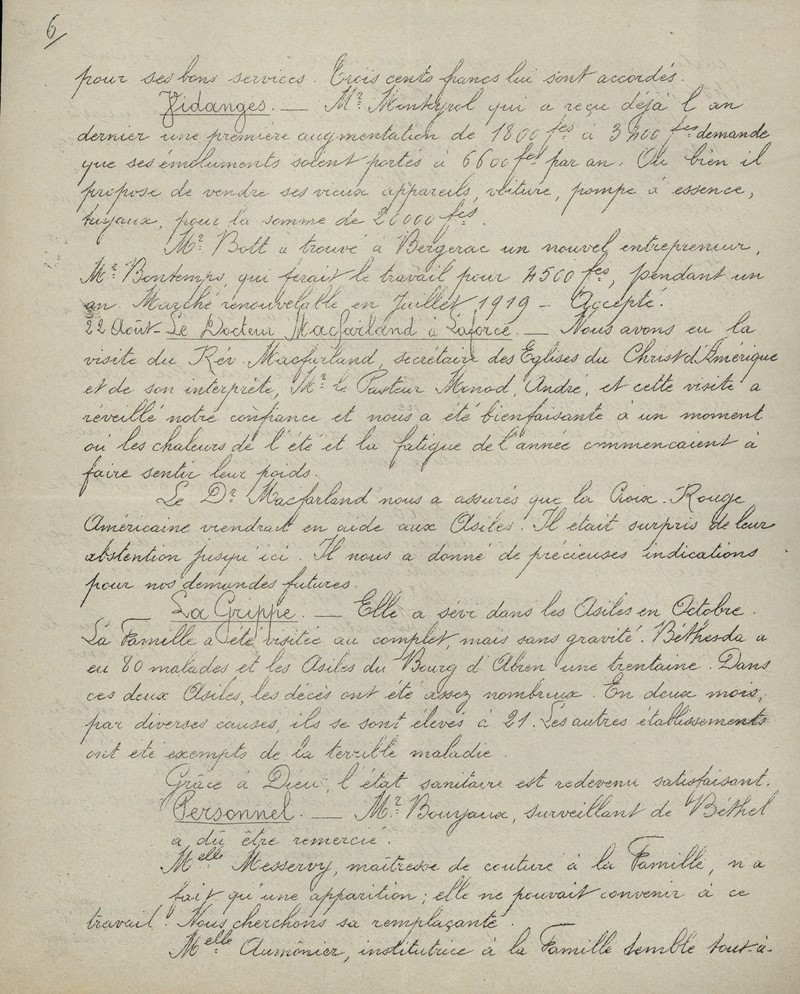 6/
pour ses bons services. Trois cents francs lui sont accordés.
Vidanges. — Mr Monteyrol qui a reçu déjà l'an
dernier une première augmentation de 1800 fcs à 3400 fcs demande
que ses émoluments soient portés à 6600 fcs par an. Ou bien il
propose de vendre ses vieux appareils, voiture, pompe à essence,
tuyaux, pour la somme de 20000 fcs.
Mr Bott a trouvé à Bergerac un nouvel entrepreneur,
Mr Bontemps, qui ferait le travail pour 4500 fcs, pendant un
an. Marché renouvelable en Juillet 1919 - Accepté.
22 Août - Le Docteur Macfarland à Laforce. — Nous avons eu la
visite du Rév. Macfarland, secrétaire des Eglises du Christ d'Amérique
et de son interprète, Mr le Pasteur Monod, André, et cette visite a
réveillé notre confiance et nous a été bienfaisante à un moment
où les chaleurs de l'été et la fatigue de l'année commencaient à
faire sentir leur poids.
Le Dr Macfarland nous a assurés que la Croix-Rouge
Américaine viendrait en aide aux Asiles. Il était surpris de leur
abstention jusqu'ici. Il nous a donné de précieuses indications
pour nos demandes futures.
— La Grippe. — Elle a sévi dans les Asiles en Octobre.
La Famille a été visitée au complet, mais sans gravité. Béthesda a
eu 80 malades et les Asiles du Bourg d'Abren une trentaine. Dans
ces deux Asiles, les décès ont été assez nombreux. En deux mois,
par diverses causes, ils se sont élevés à 21. Les autres établissements
ont été exempts de la terrible maladie.
Grâce à Dieu, l'état sanitaire est redevenu satisfaisant.
Personnel. — Mr Bourjaux, surveillant de Béthel
a dû être remercié.
Melle Messervy, maîtresse de couture à la Famille, n'a
fait qu'une apparition; elle ne pouvait convenir à ce
travail. Nous cherchons sa remplaçante.
Melle Aumônier, institutrice à la Famille semble tout-à-